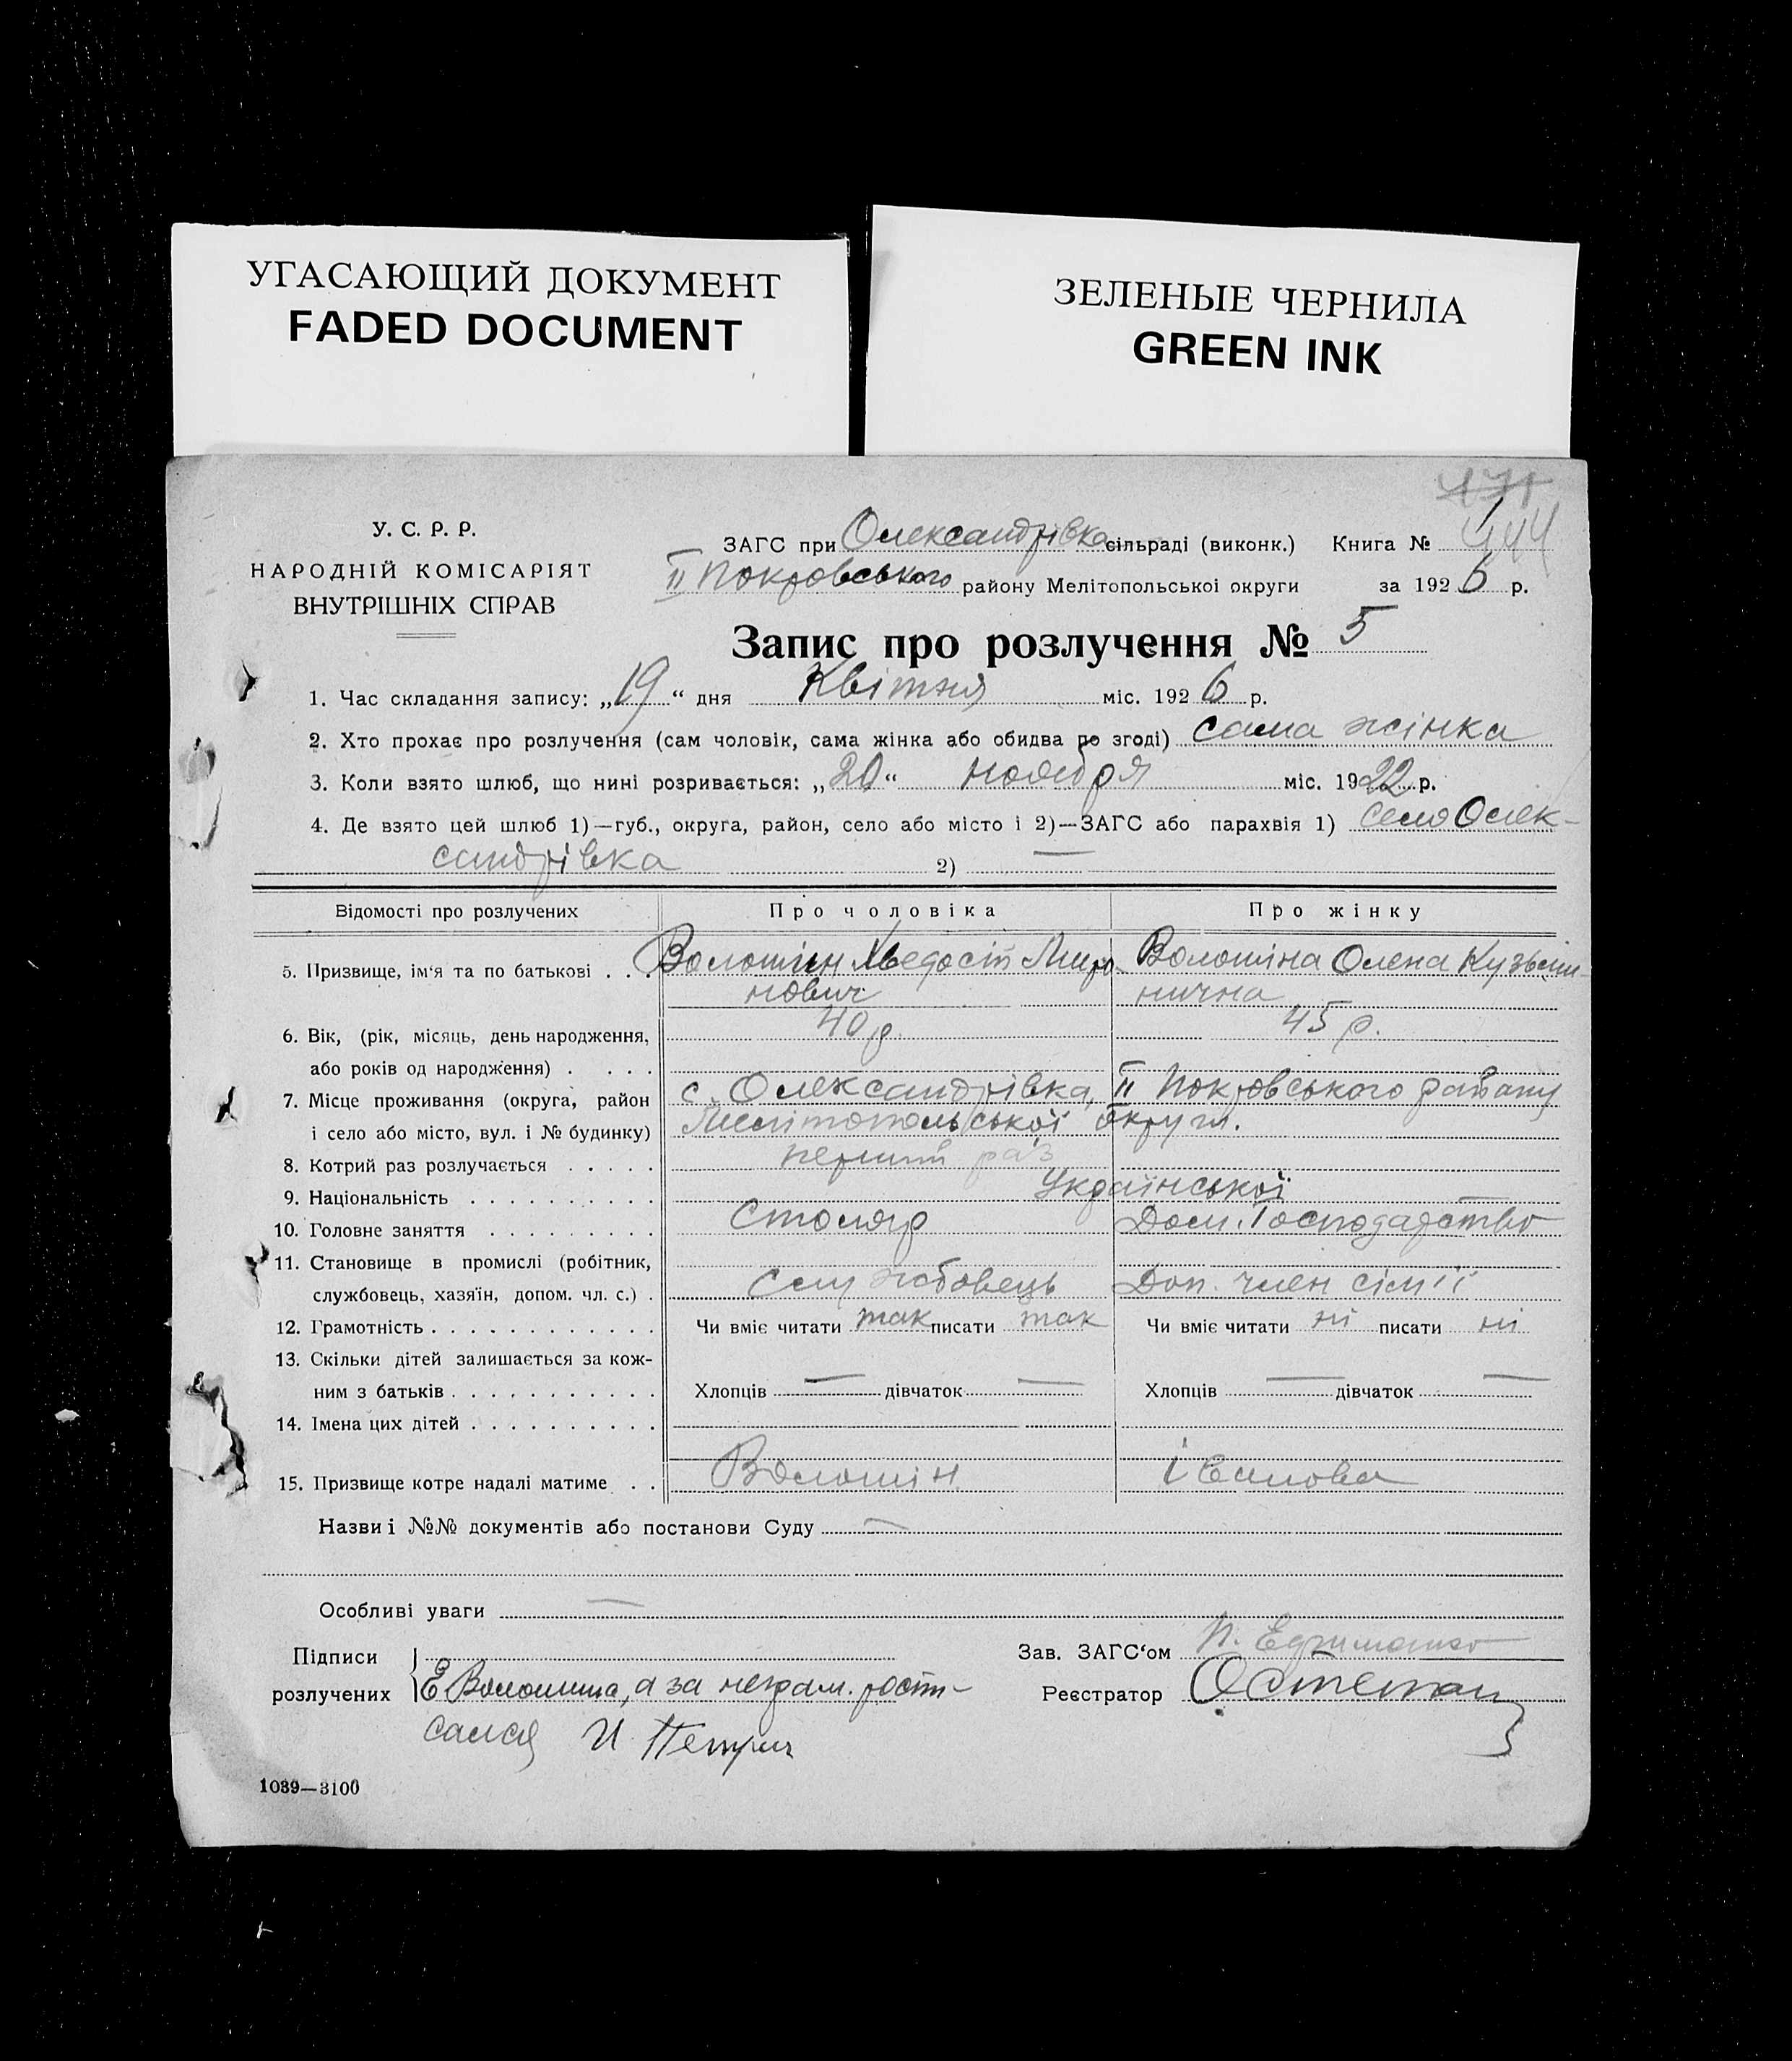 УГАСАЮЩИЙ ДОКУМЕНТ
FADED DOCUMENT
ЗЕЛЕНЫЕ ЧЕРНИЛА
GREEN INK
У. С. Р. Р.
НАРОДНІЙ КОМІСАРІЯТ
ВНУТРІШНІХ СПРАВ
ЗАГС при Олександрівка сільраді (виконк.) Книга № 1
II Покровського району Мелітопольської округи за 1926 р.
Запис про розлучення № 5
1. Час складання запису: „19“ дня Квітня міс. 1926 р.
2. Хто прохає про розлучення (сам чоловік, сама жінка або обидва по згоді) сама жінка
3. Коли взято шлюб, що нині розривається: „20“ ноября міс. 1922 р.
4. Де взято цей шлюб 1)—губ., округа, район, село або місто і 2)—ЗАГС або парахвія 1) село Олек-
сандрівка 2) —
Відомості про розлучених Про чоловіка Про жінку
5. Призвище, ім'я та по батькові . . Волошин Хведосій Миро- Волошіна Олена Кузьми-
нович нична
6. Вік, (рік, місяць, день народження, 40 р. 45 р.
або років од народження) . . . .
7. Місце проживання (округа, район с. Олександрівка, II Покровського району
і село або місто, вул. і № будинку) Мелітопольської округи.
8. Котрий раз розлучається . . . . . перший раз
9. Національність . . . . . . . . . . Української
10. Головне заняття . . . . . . . . . Столяр Дом. Господарство
11. Становище в промислі (робітник,
службовець, хазяїн, допом. чл. с.) . Службовець Доп. член сім'ії
12. Грамотність . . . . . . . . . . . . Чи вміє читати так писати так Чи вміє читати ні писати ні
13. Скільки дітей залишається за кож-
ним з батьків . . . . . . . . . . . Хлопців — дівчаток — Хлопців — дівчаток —
14. Імена цих дітей . . . . . . . . . .
15. Призвище котре надалі матиме . . Волошін. Іванова
Назви і №№ документів або постанови Суду —
Особливі уваги —
Підписи Зав. ЗАГС'ом
розлучених Е Волошина, а за неграм. роспи- Реєстратор
сался И.
1039—3100